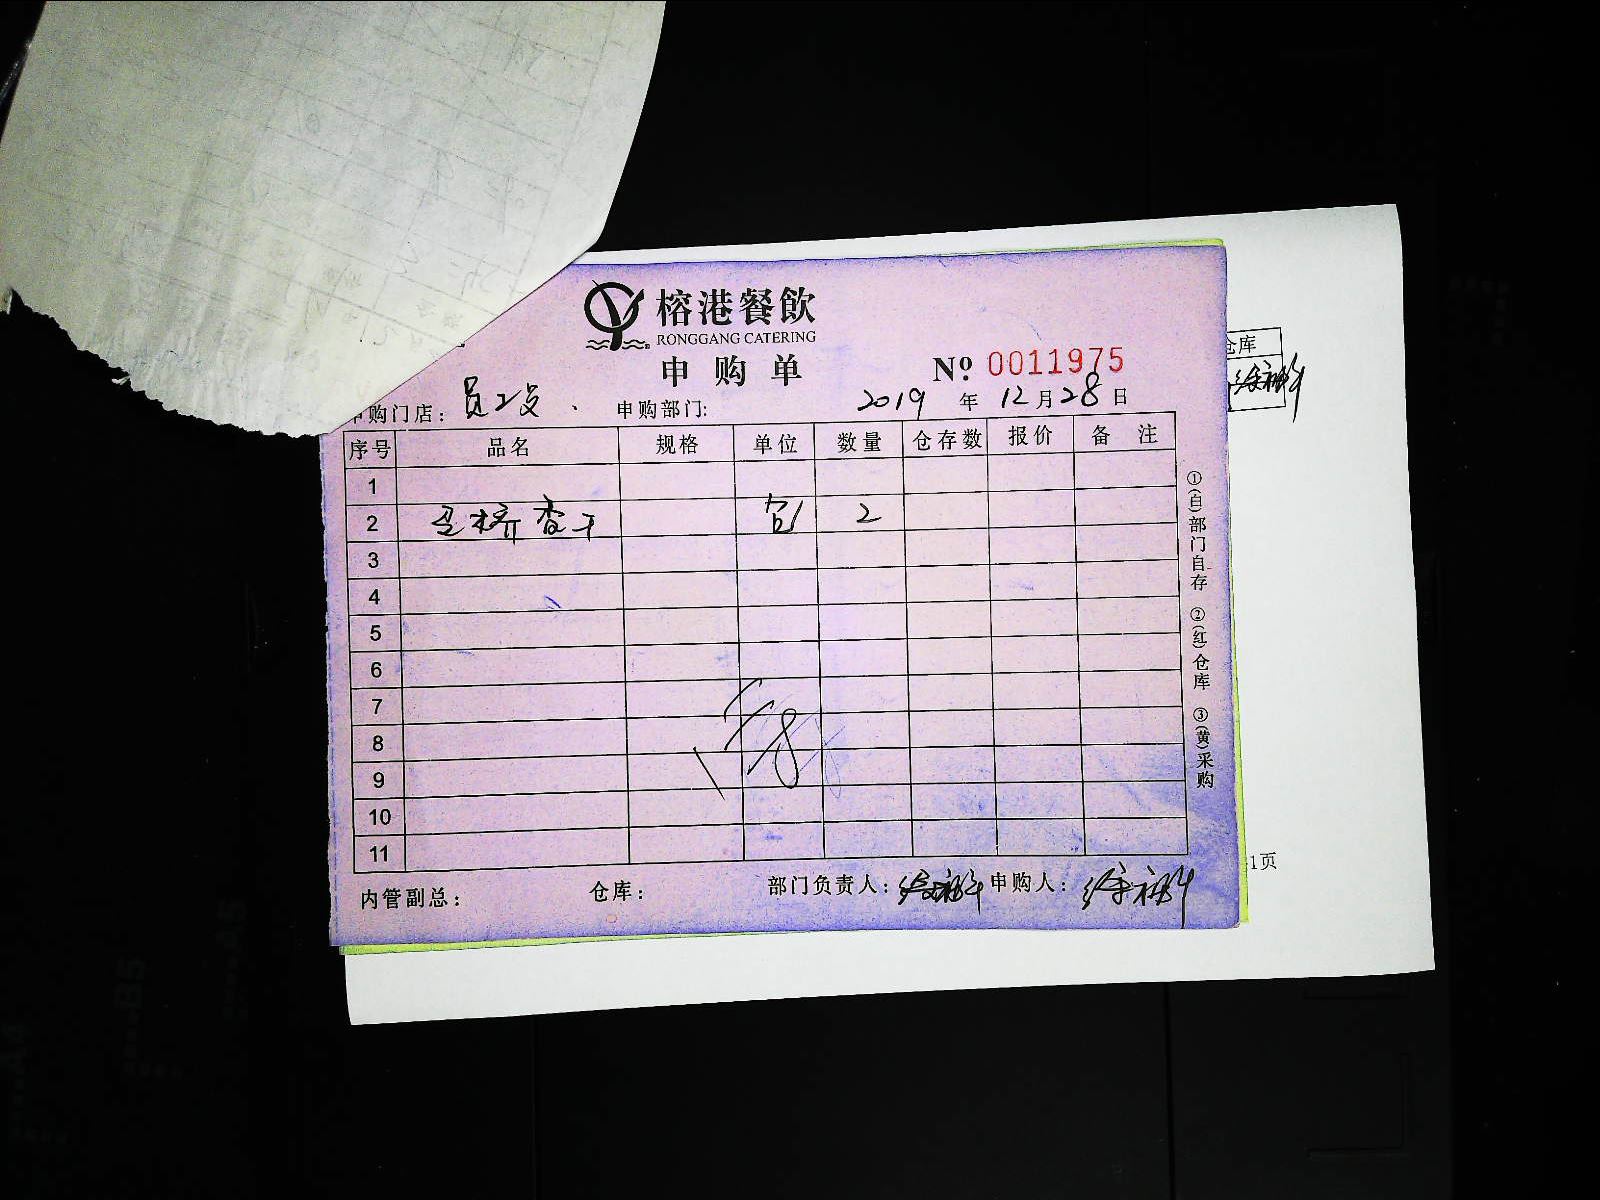 榕港餐飲
RONGGANG CATERING
申购单
№ 0011975
申购门店： 申购部门： 2019 年 12 月 28 日
序号 品名 规格 单位 数量 仓存数 报价 备 注
1
2 香干 包 2
3
4
5
6
7
8
9
10
11
内管副总： 仓库： 部门负责人： 申购人：
①(白)部门自存 ②(红)仓库 ③(黄)采购
仓库
1页